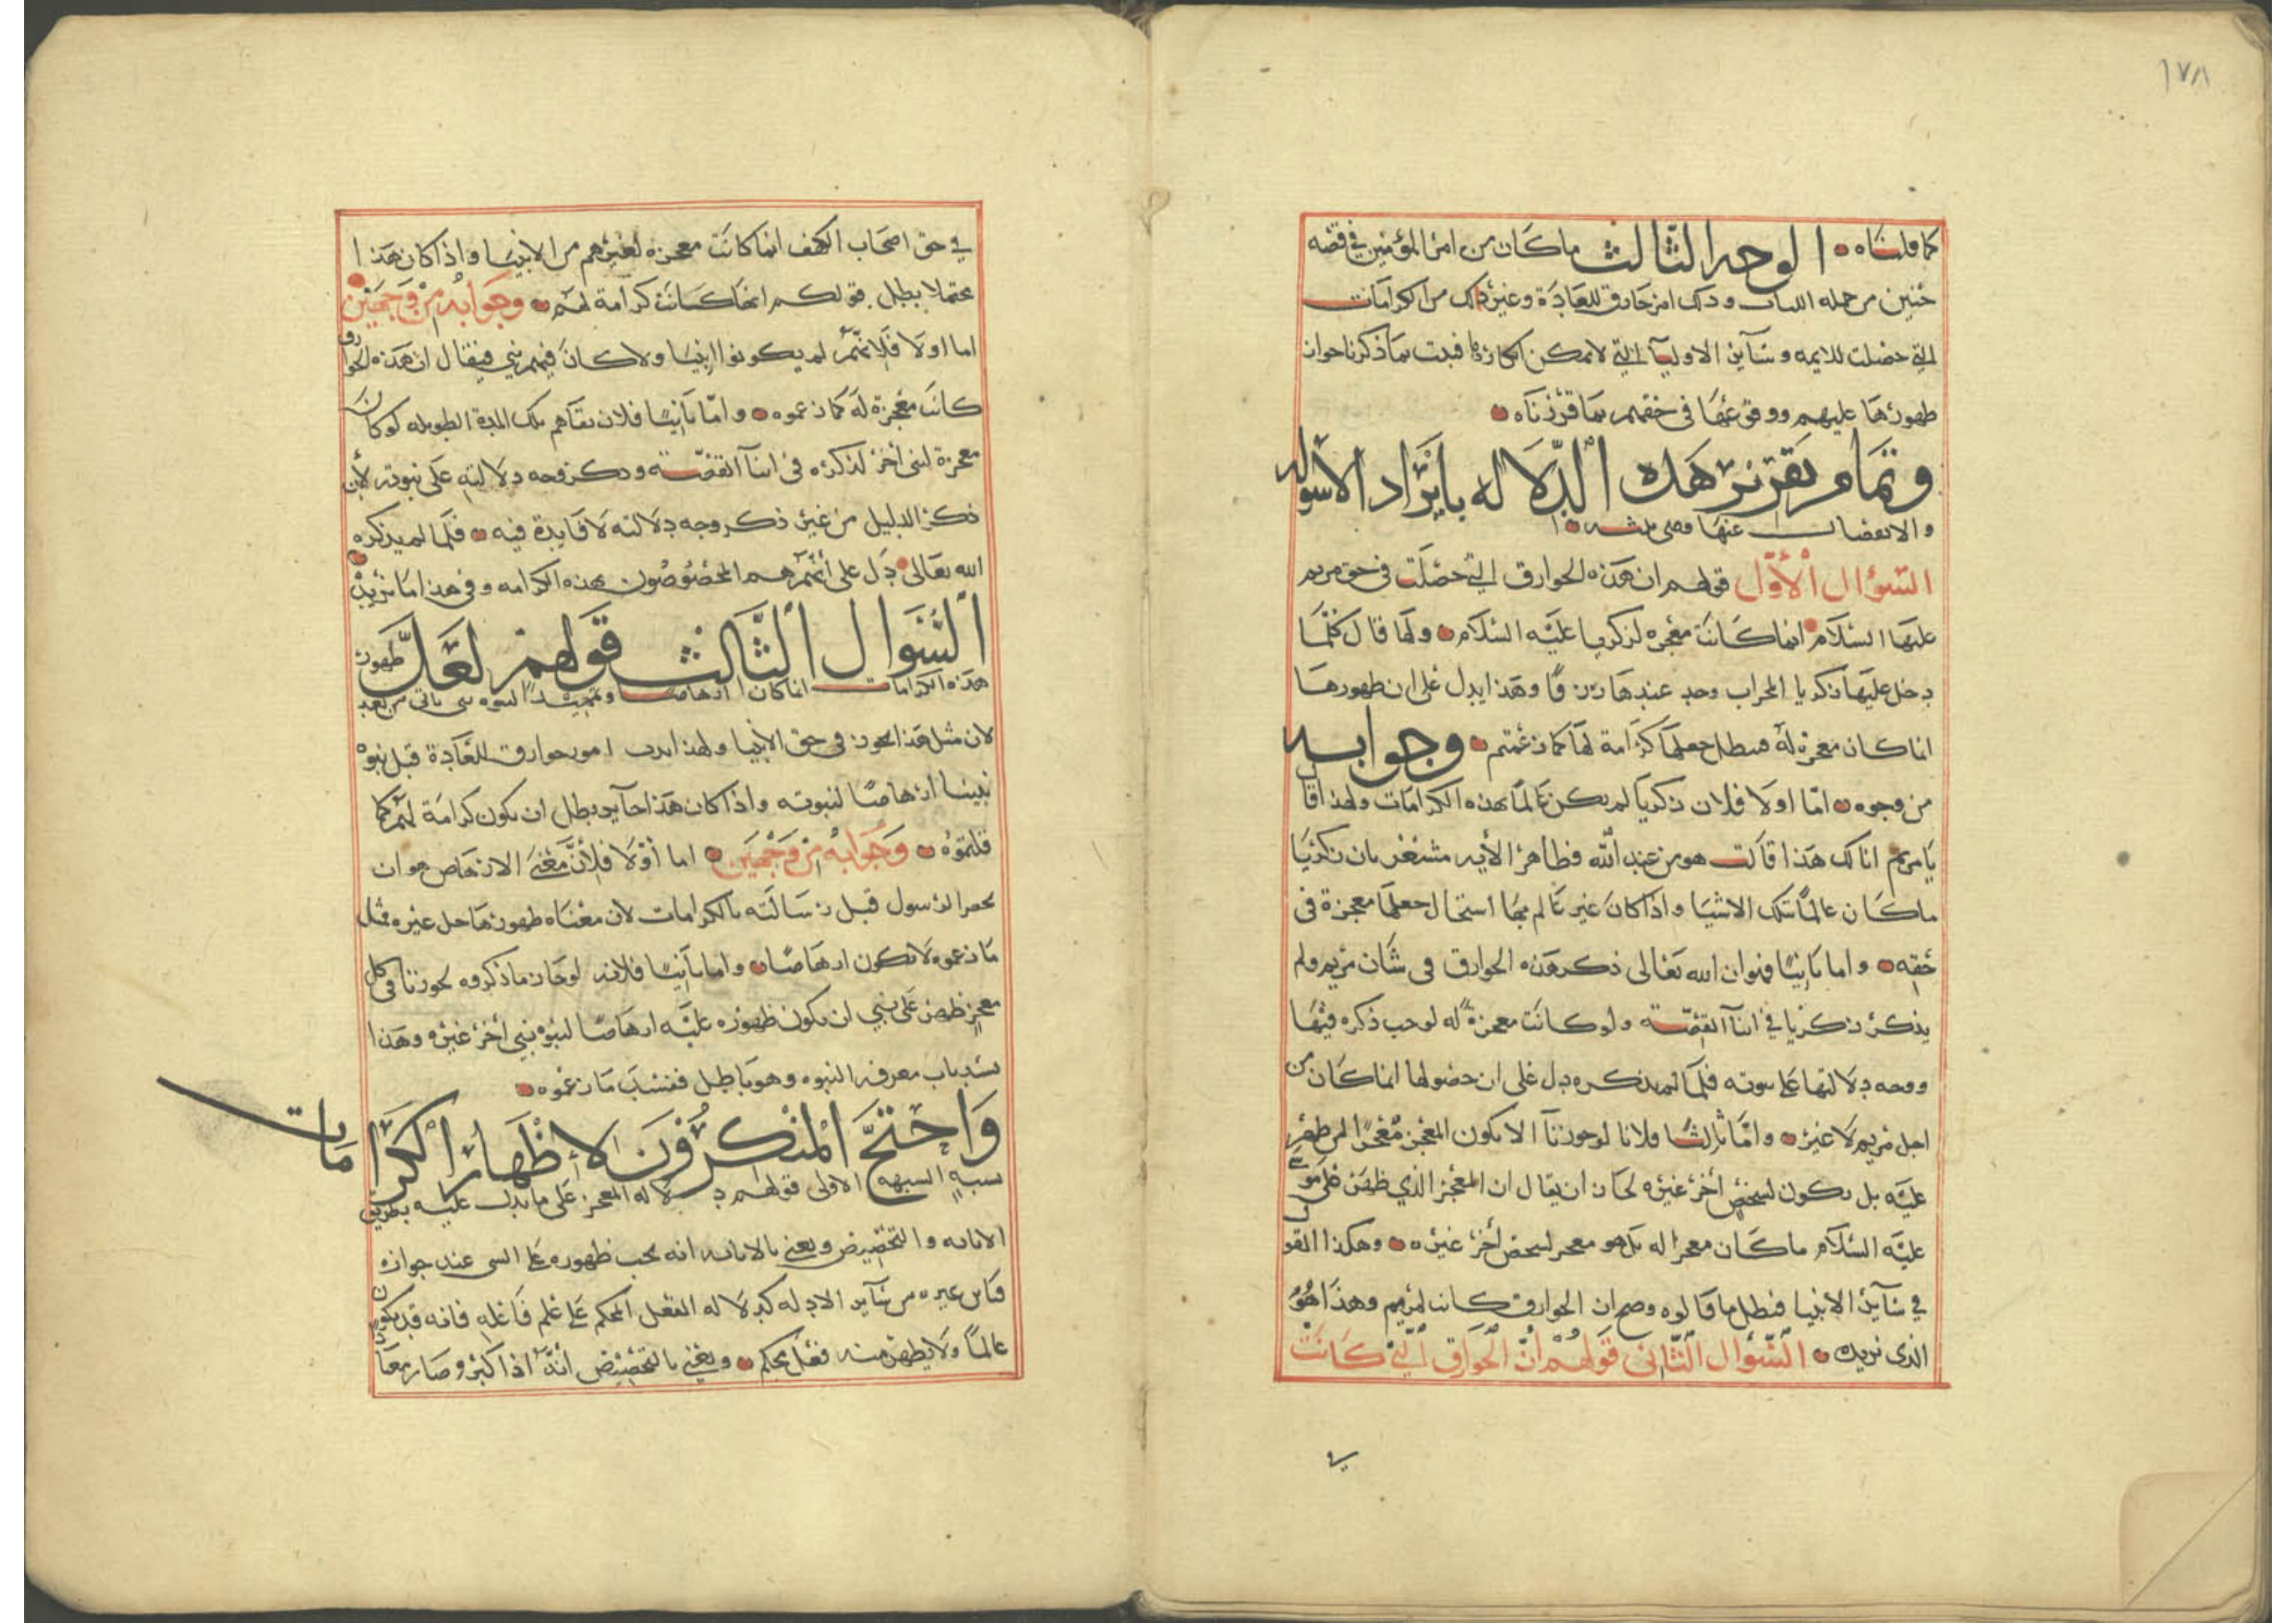 ١٧٨
كما قلناه الوجه الثالث ماكان من امر المؤمنين في قصه
حنين من جمله وذلك امر خارق للعادة وغير ذلك من الكرامات
التي حصلت للايمه وسآير الاوليآ التي لايمكن انكارها فثبت بما ذكرنا جواز
ظهورها عليهم ووقوعها في حقهم بما قررناه
وتمام تقرير هذه الدلاله بايراد الاسوله
والانفصال عنها وهي ثلثه
السؤال الأول قولهم ان هذه الخوارق التي حصلت في حق مريم
عليها السلام انما كانت معجزه لزكريا عليه السلام ولها قال كلما
دخل عليها زكريا المحراب وجد عندها رزقًا وهذا يدل على ان ظهورها
انما كان معجزه له فبطل جعلها كرامة لها كما زعمتم وجوابه
من وجوه امّا اولا فلان زكريا لم يكن عالمًا بهذه الكرامات ولهذا قا
يا مريم انا لك هذا قالت هو من عند الله فظاهر الأيه مشعر بان زكريا
ماكان عالمًا بتلك الاشيا واذا كان غير عالم بها استحال جعلها معجزة في
حقه واما ثانيًا فهو ان الله تعالى ذكر هذه الخوارق في شان مريم ولم
يذكر زكريا في اثنآ القصّه ولو كانت معجزةً له لوجب ذكره فيها
ووجه دلالتها على نبوته فلما لم يذكره دل على ان حصولها انما كان من
اجل مريم لا غيره وامّا ثالثًا فلانا لو جوزنآ الا يكون المعجز معجزًا لمن ظهر
عليه بل يكون لشخصٍ أخر غيره لجاز ان يقال ان المعجز الذي ظهر على موسى
عليه السلام ماكان معجزًا له بل هو معجز لشخص أخر غيره وهكذا القول
في سآير الانبيا فبطل ما قالوه وصح ان الخوارق كانت لمريم وهذا هو
الذى نريده السّؤال الثانى قولهم ان الخوارق التي كانت
في
في حق اصحاب الكهف انما كانت معجزه لغيرهم من الانبيا واذا كان هذا
محتملا بطل قولكم انها كانت كرامة لهم وجوابه من وجهين
اما اولا فلانهم لم يكونوا انبيا ولا كان فيهم نبي فيقال ان هذه الخوارق
كانت معجزة له كما زعموه وامّا ثانيًا فلان بقآهم تلك المدة الطويله لو كان
معجزة لنبى أخر لذكره في اثنآ القصّه وذكر وجه دلالته على نبوته لأن
ذكر الدليل من غير ذكر وجه دلالته لا فايدة فيه فلما لم يذكره
الله تعالى دل على أنهم هم المخصوصون بهذه الكرامه وفي هذا ما نريد
السُّؤال الثالث قولهم لعلّ ظهور
هذه الكرامات انما كان ارهاصًا وتمهيدًا لنبوه نبي ياتي من بعد
لان مثل هذا يجوز في حق الأنبيا ولهذا امور خوارق للعادة قبل نبوة
نبينا ارهاصًا لنبوته واذا كان هذا جآيزا بطل ان يكون كرامة لهم كما
قلتموه وجوابه من وجهين اما أوّلا فلأنّ معنى الارهاص هو ان
الرسول قبل رسالته بالكرامات لان معناه ظهورها لاجل غيره فمثل
ما زعموه لا يكون ارهاصًا واما ثانيًا فلانه لو جاز ما ذكروه لجوزنا في كل
معجز ظهر على نبي ان يكون ظهوره عليه ارهاصًا لنبوة نبي أخر غيره وهذا
يسُد باب معرفه النبوه وهو باطل ففسد ما زعموه
واحتجّ المنكرون لإظهار الكرامات
بشبهٍ الشبهه الاولى قولهم دلاله المعجز على ما يدل عليه بطريق
الابانه والتخصيص ونعني بالابانه انه يجب ظهوره على النبى عند جوازه
من سآير الادله كدلاله الفعل المحكم على علم فاعله فانه قد يكون
عالمًا ولا يظهر منه فعل محكم ونعني بالتخصيص أنه اذا كثر وصار معتادًا